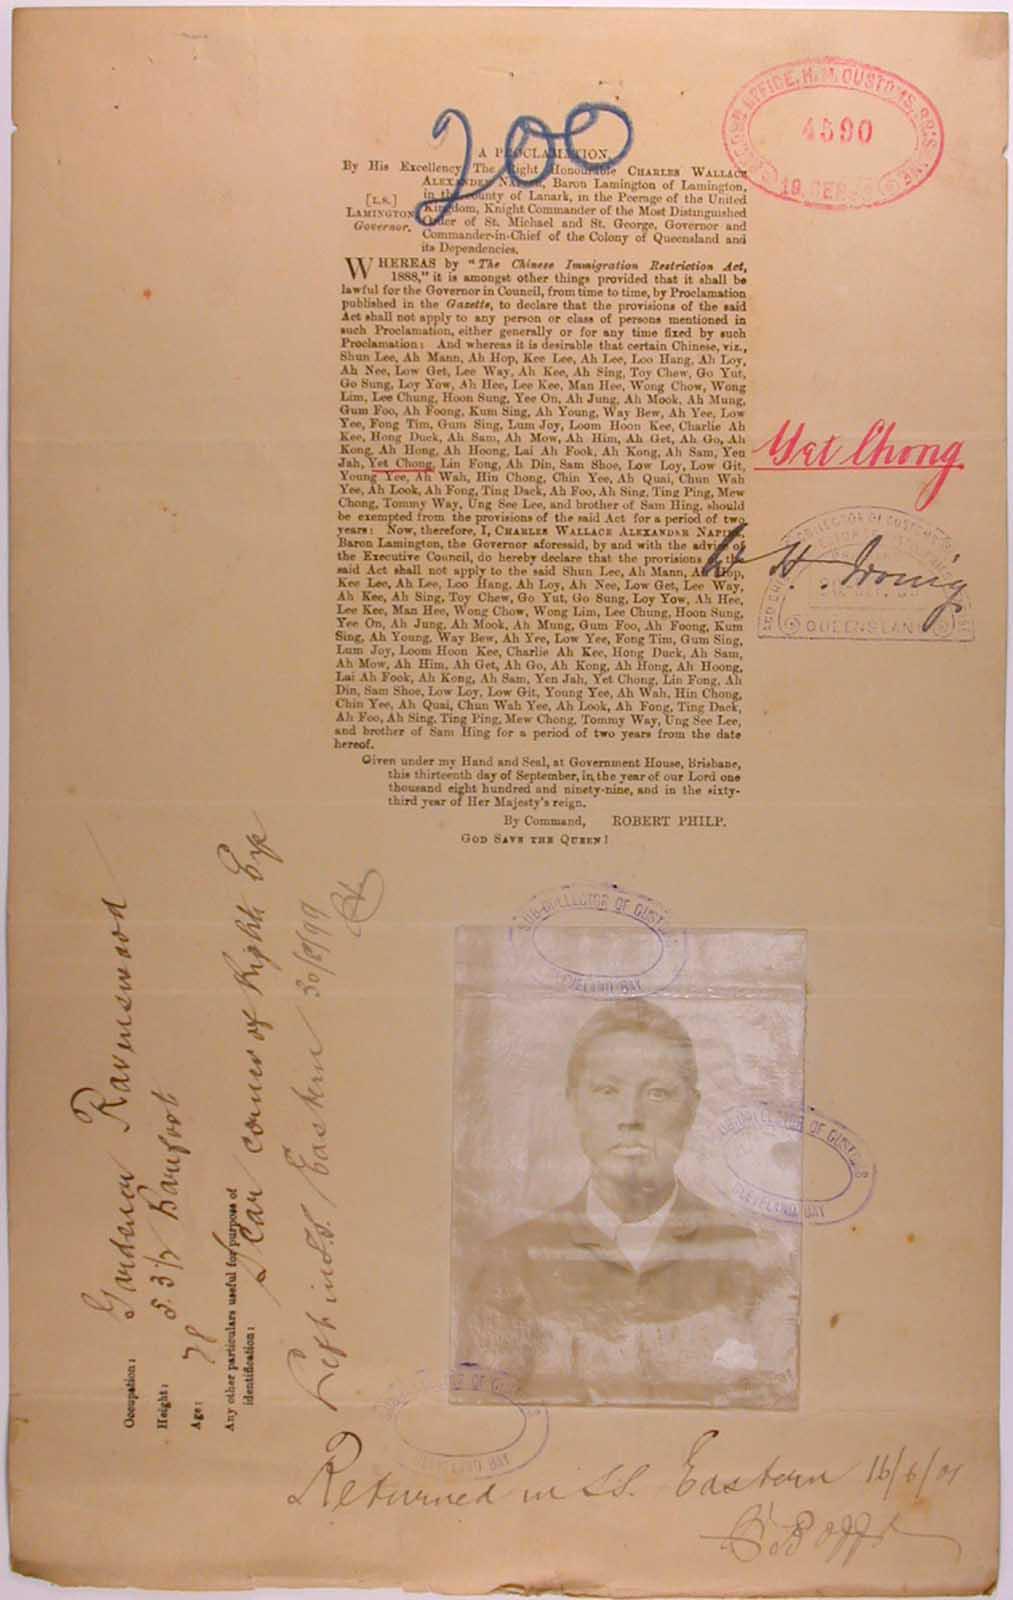 200
OFFICE, H.M. CUSTOMS,
4590
19. SEP.
A PROCLAMATION.
By His Excellency The Right Honourable CHARLES WALLACE
ALEXANDER NAPIER, Baron Lamington of Lamington,
in the county of Lanark, in the Peerage of the United
Kingdom, Knight Commander of the Most Distinguished
Order of St. Michael and St. George, Governor and
Commander-in-Chief of the Colony of Queensland and
its Dependencies.
[L.S.]
LAMINGTON
Governor.
WHEREAS by "The Chinese Immigration Restriction Act,
1888," it is amongst other things provided that it shall be
lawful for the Governor in Council, from time to time, by Proclamation
published in the Gazette, to declare that the provisions of the said
Act shall not apply to any person or class of persons mentioned in
such Proclamation, either generally or for any time fixed by such
Proclamation: And whereas it is desirable that certain Chinese, viz.,
Shun Lee, Ah Mann, Ah Hop, Kee Lee, Ah Lee, Loo Hang, Ah Loy,
Ah Nee, Low Get, Lee Way, Ah Kee, Ah Sing, Toy Chew, Go Yut,
Go Sung, Loy Yow, Ah Hee, Lee Kee, Man Hee, Wong Chow, Wong
Lim, Lee Chung, Hoon Sung, Yee On, Ah Jung, Ah Mook, Ah Mung,
Gum Foo, Ah Foong, Kum Sing, Ah Young, Way Bew, Ah Yee, Low
Yee, Fong Tim, Gum Sing, Lum Joy, Loom Hoon Kee, Charlie Ah
Kee, Hong Duck, Ah Sam, Ah Mow, Ah Him, Ah Get, Ah Go, Ah
Kong, Ah Hong, Ah Hoong, Lai Ah Fook, Ah Kong, Ah Sam, Yen
Jah, Yet Chong, Lin Fong, Ah Din, Sam Shoe, Low Loy, Low Git,
Young Yee, Ah Wah, Hin Chong, Chin Yee, Ah Quai, Chun Wah
Yee, Ah Look, Ah Fong, Ting Dack, Ah Foo, Ah Sing, Ting Ping, Mew
Chong, Tommy Way, Ung See Lee, and brother of Sam Hing, should
be exempted from the provisions of the said Act for a period of two
years: Now, therefore, I, CHARLES WALLACE ALEXANDER NAPIER,
Baron Lamington, the Governor aforesaid, by and with the advice of
the Executive Council, do hereby declare that the provisions of the
said Act shall not apply to the said Shun Lee, Ah Mann, Ah Hop,
Kee Lee, Ah Lee, Loo Hang, Ah Loy, Ah Nee, Low Get, Lee Way,
Ah Kee, Ah Sing, Toy Chew, Go Yut, Go Sung, Loy Yow, Ah Hee,
Lee Kee, Man Hee, Wong Chow, Wong Lim, Lee Chung, Hoon Sung,
Yee On, Ah Jung, Ah Mook, Ah Mung, Gum Foo, Ah Foong, Kum
Sing, Ah Young, Way Bew, Ah Yee, Low Yee, Fong Tim, Gum Sing,
Lum Joy, Loom Hoon Kee, Charlie Ah Kee, Hong Duck, Ah Sam,
Ah Mow, Ah Him, Ah Get, Ah Go, Ah Kong, Ah Hong, Ah Hoong,
Lai Ah Fook, Ah Kong, Ah Sam, Yen Jah, Yet Chong, Lin Fong, Ah
Din, Sam Shoe, Low Loy, Low Git, Young Yee, Ah Wah, Hin Chong,
Chin Yee, Ah Quai, Chun Wah Yee, Ah Look, Ah Fong, Ting Dack,
Ah Foo, Ah Sing, Ting Ping, Mew Chong, Tommy Way, Ung See Lee,
and brother of Sam Hing for a period of two years from the date
hereof.
Given under my Hand and Seal, at Government House, Brisbane,
this thirteenth day of September, in the year of our Lord one
thousand eight hundred and ninety-nine, and in the sixty-
third year of Her Majesty's reign.
By Command, ROBERT PHILP.
GOD SAVE THE QUEEN!
Yet Chong
COLLECTOR OF CUSTOMS
QUEENSLAND
W. H. Irving
Occupation: Gardener Ravenswood
Height: 5. 3 1/2 barefoot
Age: 28
Any other particulars useful for purpose of
identification: Scar corner of Right Eye
Left in S.S. Eastern 30/9/99
SUB-COLLECTOR OF CUSTOMS
CLEVELAND BAY
SUB-COLLECTOR OF CUSTOMS
CLEVELAND BAY
SUB-COLLECTOR OF CUSTOMS
CLEVELAND BAY
Returned in S.S. Eastern 16/6/01